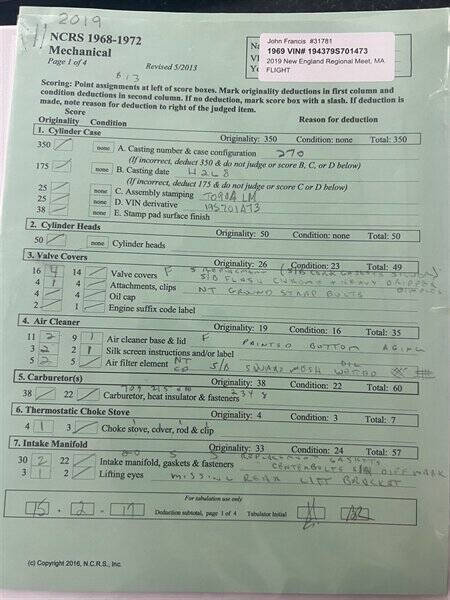 2019
NCRS 1968-1972
Mechanical
Page 1 of 4
Revised 5/2013
John Francis #31781
1969 VIN# 194379S701473
2019 New England Regional Meet, MA
FLIGHT
Scoring: Point assignments at left of score boxes. Mark originality deductions in first column and
condition deductions in second column. If no deduction, mark score box with a slash. If deduction is
made, note reason for deduction to right of the judged item.
Score
Originality Condition Reason for deduction
1. Cylinder Case Originality: 350 Condition: none Total: 350
350 none A. Casting number & case configuration 270
(If incorrect, deduct 350 & do not judge or score B, C, or D below)
175 none B. Casting date H268
(If incorrect, deduct 175 & do not judge or score C or D below)
25 none C. Assembly stamping
25 none D. VIN derivative 19S701473
38 none E. Stamp pad surface finish
2. Cylinder Heads Originality: 50 Condition: none Total: 50
50 none Cylinder heads
3. Valve Covers Originality: 26 Condition: 23 Total: 49
16 4 14 Valve covers F
S/B FLASH CHROME
4 1 4 Attachments, clips NT GROUND STRAP BOLTS
4 4 Oil cap
2 1 Engine suffix code label
4. Air Cleaner Originality: 19 Condition: 16 Total: 35
11 2 9 1 Air cleaner base & lid F PAINTED BOTTOM AGING
3 2 2 1 Silk screen instructions and/or label
5 2 5 Air filter element NT CD S/B SQUARE MESH OIL WETTED
5. Carburetor(s) Originality: 38 Condition: 22 Total: 60
38 22 Carburetor, heat insulator & fasteners 2348
6. Thermostatic Choke Stove Originality: 4 Condition: 3 Total: 7
4 1 3 Choke stove, cover, rod & clip
7. Intake Manifold Originality: 33 Condition: 24 Total: 57
30 2 22 Intake manifold, gaskets & fasteners REPLACEMENT GASKETS
CENTERBOLTS S/B DIFF MARK
3 1 2 Lifting eyes MISSING REAR LIFT BRACKET
For tabulation use only
15 - 2 - 17 Deduction subtotal, page 1 of 4 Tabulator Initial
(c) Copyright 2016, N.C.R.S., Inc.